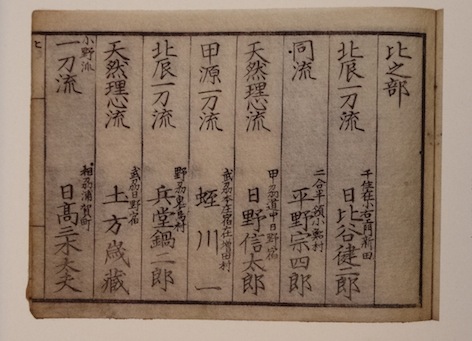 比之部
北辰一刀流 千住在小右門新田 日比谷健二郎
同流 二合半領小村 平野宗四郎
天然理心流 甲刕道中日野宿 日野信太郎
甲源一刀流 武刕本庄宿在増田村 蛭川一
北辰一刀流 野刕村 兵堂鍋二郎
天然理心流 武刕日野宿 土方歳蔵
小野派一刀流 相刕浦賀町 日高太夫